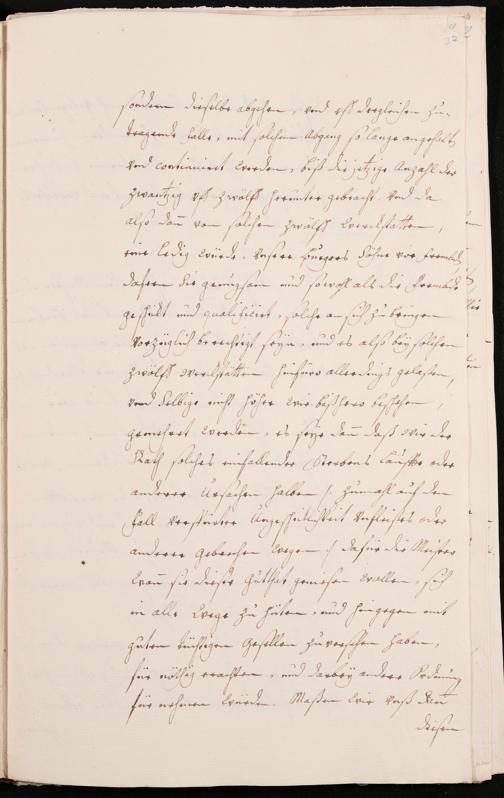 32
sondern dieselbe abgehen, und uff dergleichen zu-
tragende Fälle, mit solchem Abgang so lange angehalten
und continuiret werden, biß die jetzige Anzahl der
zwantzig uff zwölff herunter gebracht und da
alß dan von solchen zwölff Werckstätten,
eine ledig würde, unsere Burgers Söhne vor frembde,
dafern Sie genugsam und sowohl als die frembde
geschickt und qualificirt, solche an sich zu bringen
vorzüglich berechtigt seyn, und es alß bey solchen
zwölff Werckstätten hinfüro allerdings gelassen,
und selbige nicht höher wie bißhero beschehen,
gemehret werden, es seye dann daß Wir der
Rath solches einfallender Sterbens Läuffte oder
anderer Ursachen halben /: zumahl auf den
Fall verspürter Ungeschicklichkeit Unfleißes oder
anderer gebrechen wegen :/ dafür die Meister
wann sie dieser Gutthat geniesen wollen, sich
in alle Wege zu hüten, und hingegen mit
guten tüchtigen Gesellen zu versehen haben,
für nöthig erachten, und darbey andere Ordnung
für nehmen würden. Maßen wir unß den
diesen